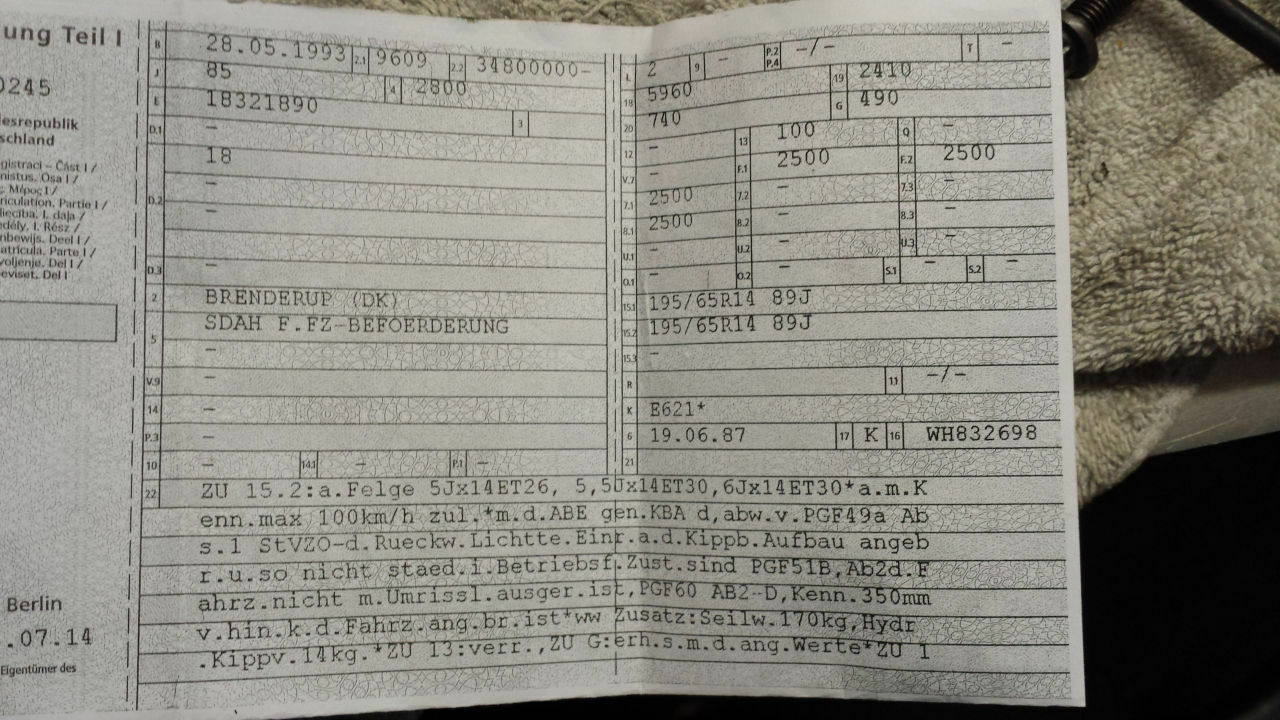 ung Teil I
0245
esrepublik
schland
gistraci – Část I /
nistus. Osa I /
riculation. Partie I /
liecība. I. daļa /
edély. I. Rész /
nbewijs. Deel I /
atrícula. Parte I /
voljenje. Del I /
eviset. Del I
Berlin
.07.14
Eigentümer des
B 28.05.1993 2.1 9609 2.2 34800000-
J 85 4 2800
E 18321890 3
D.1 –
18
D.2 –
–
D.3 –
2 BRENDERUP (DK)
5 SDAH F.FZ-BEFOERDERUNG
–
V.9 –
14 –
P.3 –
10 – 14.1 – P.1 –
L 2 9 – P.2 P.4 –/– T –
18 5960 19 2410
20 740 G 490
12 – 13 100 Q –
V.7 – F.1 2500 F.2 2500
7.1 2500 7.2 – 7.3 –
8.1 2500 8.2 – 8.3 –
U.1 – U.2 – U.3 –
O.1 – O.2 – S.1 – S.2 –
15.1 195/65R14 89J
15.2 195/65R14 89J
15.3 –
R 11 –/–
K E621*
6 19.06.87 17 K 16 WH832698
21
22 ZU 15.2:a.Felge 5Jx14ET26, 5,5Jx14ET30,6Jx14ET30*a.m.K
enn.max 100km/h zul.*m.d.ABE gen.KBA d,abw.v.PGF49a Ab
s.1 StVZO-d.Rueckw.Lichtte.Einr.a.d.Kippb.Aufbau angeb
r.u.so nicht staed.i.Betriebsf.Zust.sind PGF51B,Ab2d.F
ahrz.nicht m.Umrissl.ausger.ist,PGF60 AB2-D,Kenn.350mm
v.hin.k.d.Fahrz.ang.br.ist*ww Zusatz:Seilw.170kg,Hydr
.Kippv.14kg.*ZU 13:verr.,ZU G:erh.s.m.d.ang.Werte*ZU 1